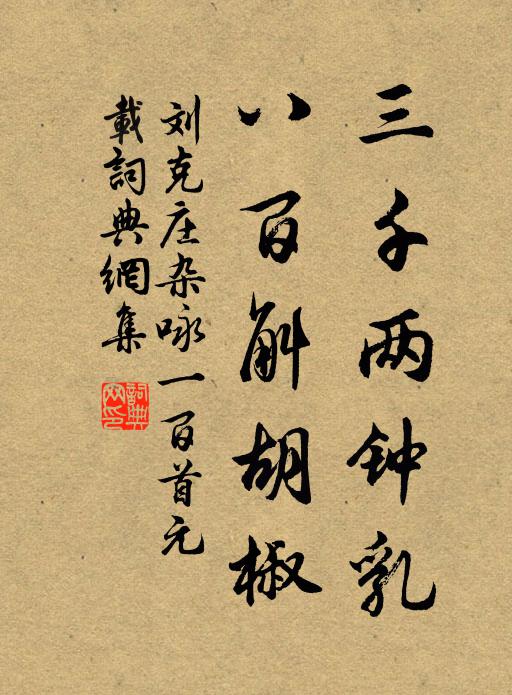 三千两钟乳
八百斛胡椒
刘克庄杂咏一百首元
載詞典網集
詞典网印